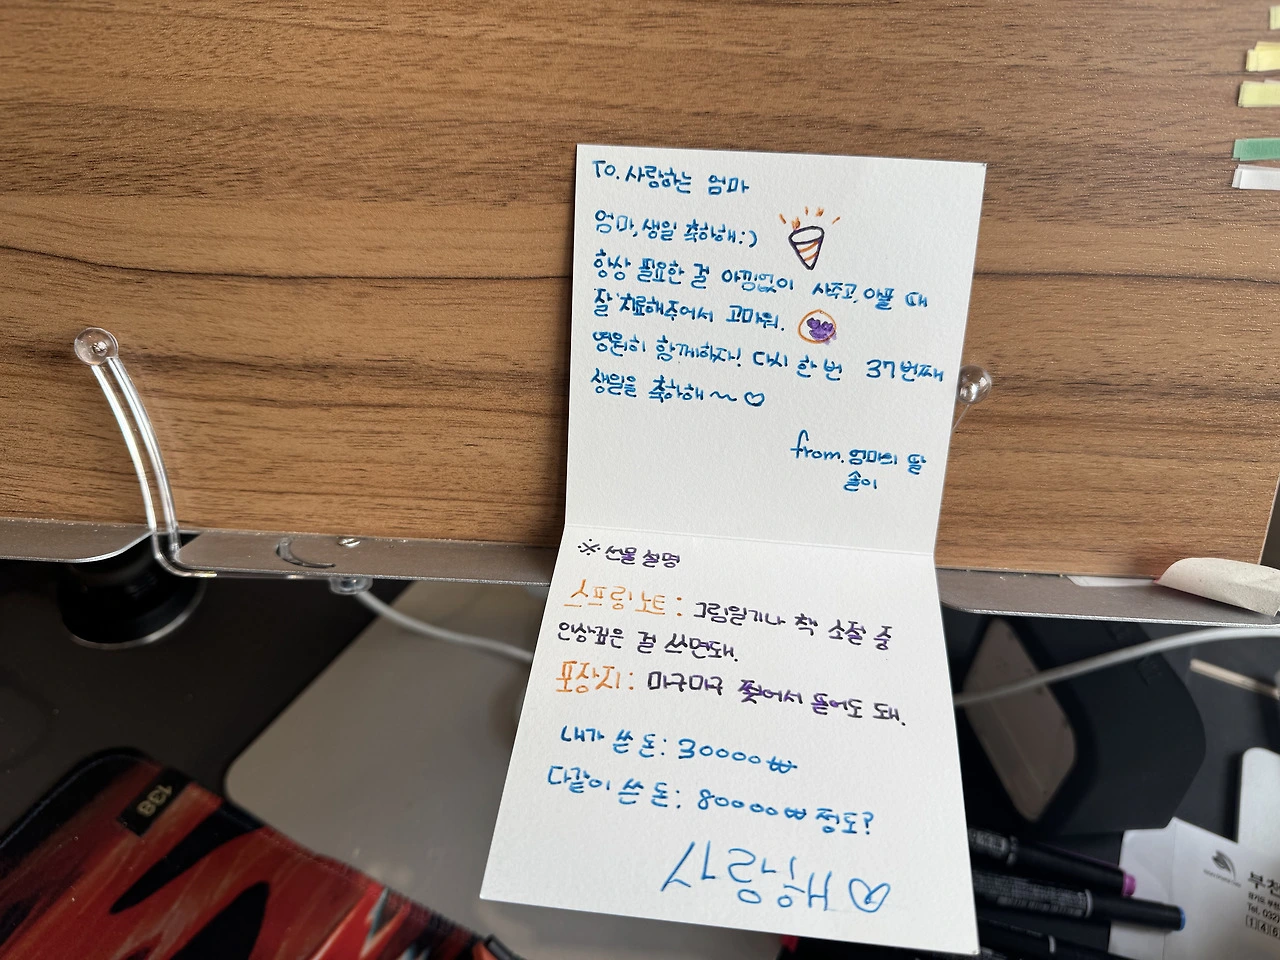 TO. 사랑하는 엄마
엄마, 생일 축하해:)
항상 필요한 걸 아낌없이 사주고, 아플 때
잘 치료해주어서 고마워.
영원히 함께하자! 다시 한 번 37번째
생일을 축하해~♡
from. 엄마의 딸
솔이
※ 선물 설명
스프링노트: 그림일기나 책 소절 중
인상깊은 걸 쓰면돼.
포장지: 마구마구 찢어서 뜯어도 돼.
내가 쓴 돈: 30000₩
다같이 쓴 돈: 80000₩ 정도?
사랑해♡
138
부천
Tel. 032)